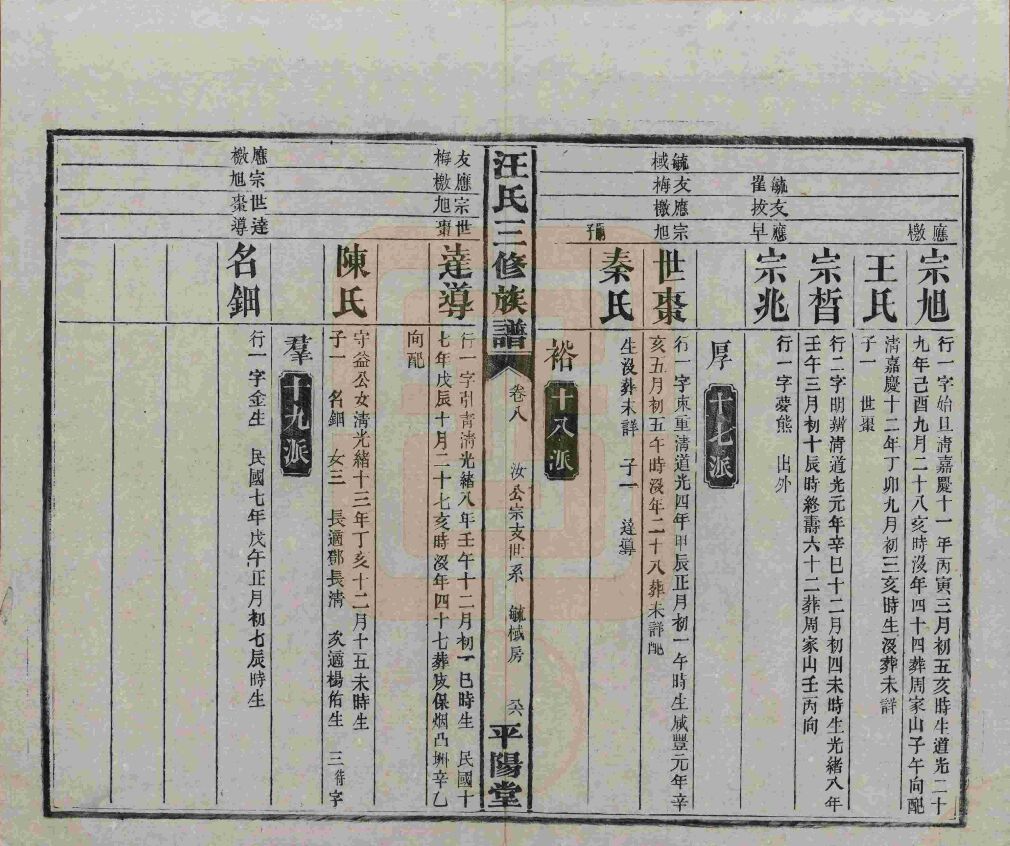 應
檄
宗旭
行一字始旦清嘉慶十一年丙寅三月初五亥時生道光二十
九年己酉九月二十八亥時沒年四十四葬周家山子午向配
王氏
清嘉慶十二年丁卯九月初三亥時生沒葬未詳
子一 世棗
宗晳
行二字明辨清道光元年辛巳十二月初四未時生光緒八年
壬午三月初十辰時終壽六十二葬周家山壬丙向
毓友應
崔放早
宗兆
行一字夢熊 出外
厚 十七派
毓友應宗
棫梅檄旭
世棗
行一字東重清道光四年甲辰正月初一午時生咸豐元年辛
亥五月初五午時沒年二十八葬未詳配
嗣子
秦氏
生沒葬未詳 子一 達導
裕 十八派
汪氏三修族譜
卷八 汝公宗支世系 毓棫房
平陽堂
友應宗世
梅檄旭棗
達導
行一字引青清光緒八年壬午十二月初一巳時生 民國十
七年戊辰十月二十七亥時沒年四十七葬皮保烟凸坳辛乙
向配
陳氏
守益公女清光緒十三年丁亥十二月十五未時生
子一 名鈿 女三 長適鄧長清 次適楊佑生 三待字
羣 十九派
應宗世達
檄旭棗導
名鈿
行一字金生 民國七年戊午正月初七辰時生